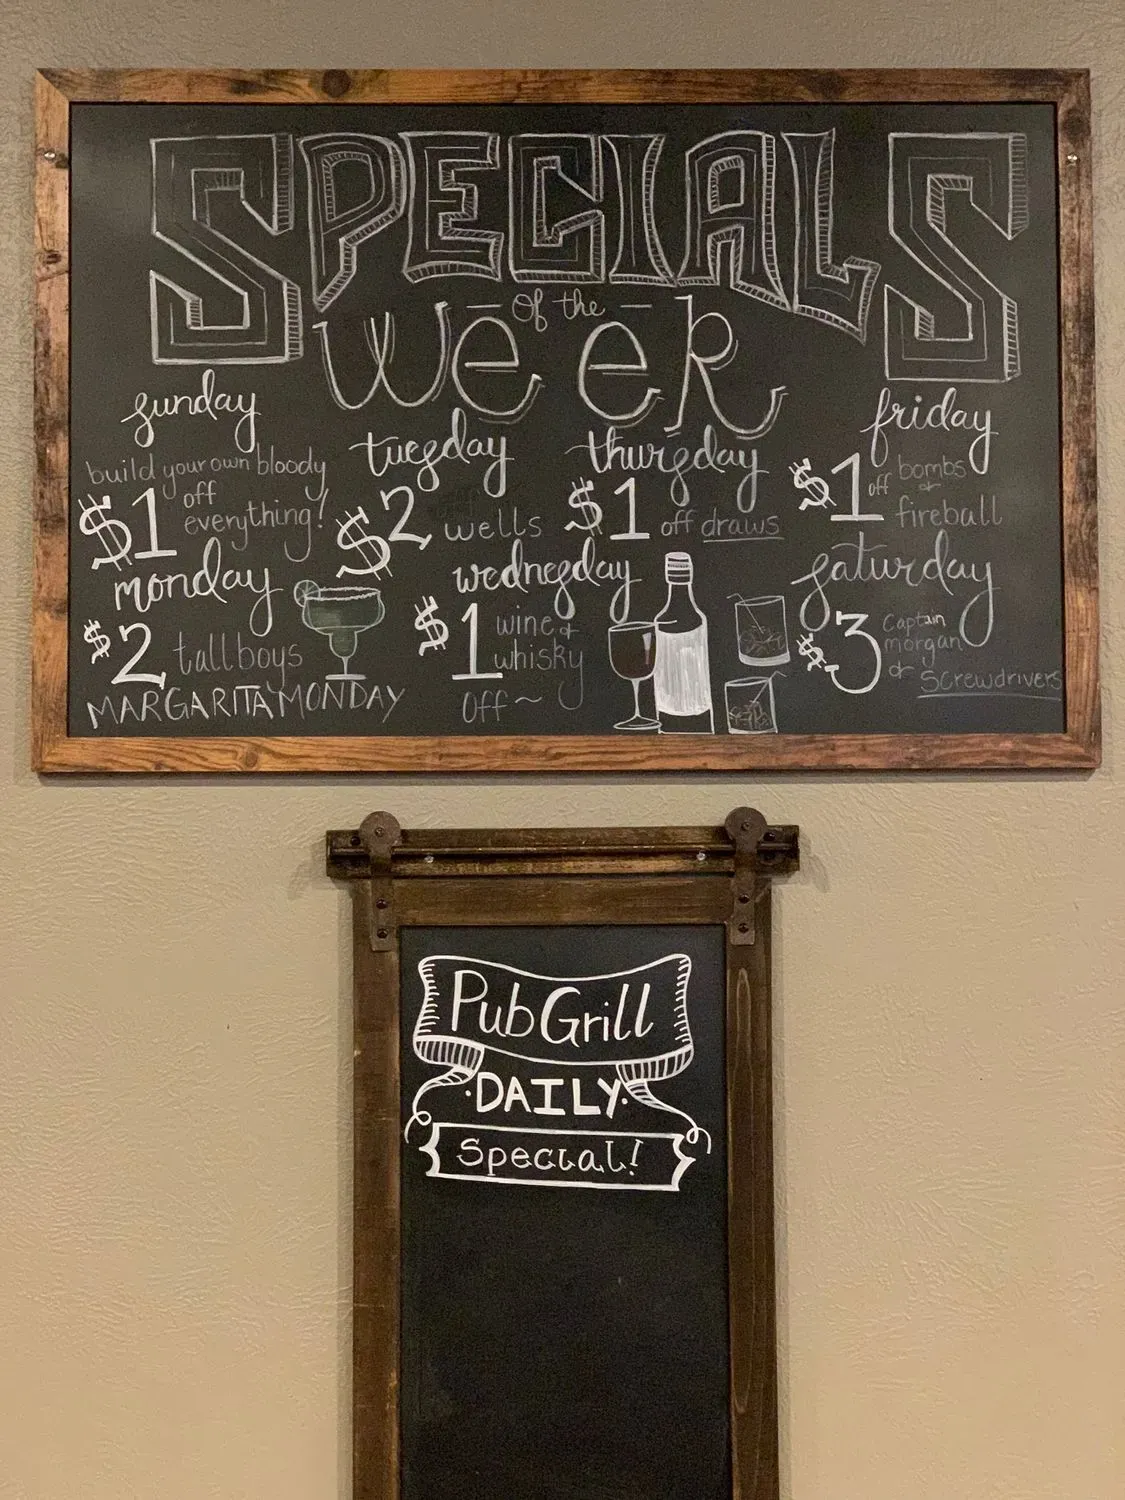 SPECIALS
of the
weeK
sunday
build your own bloody
$1 off
everything!
monday
$2 tallboys
MARGARITA MONDAY
tuesday
$2 wells
wednesday
$1 wine &
whisky
off~
thursday
$1 off draws
friday
$1 off bombs
or
fireball
saturday
$3 Captain
morgan
or screwdrivers
Pub Grill
·DAILY·
Special!